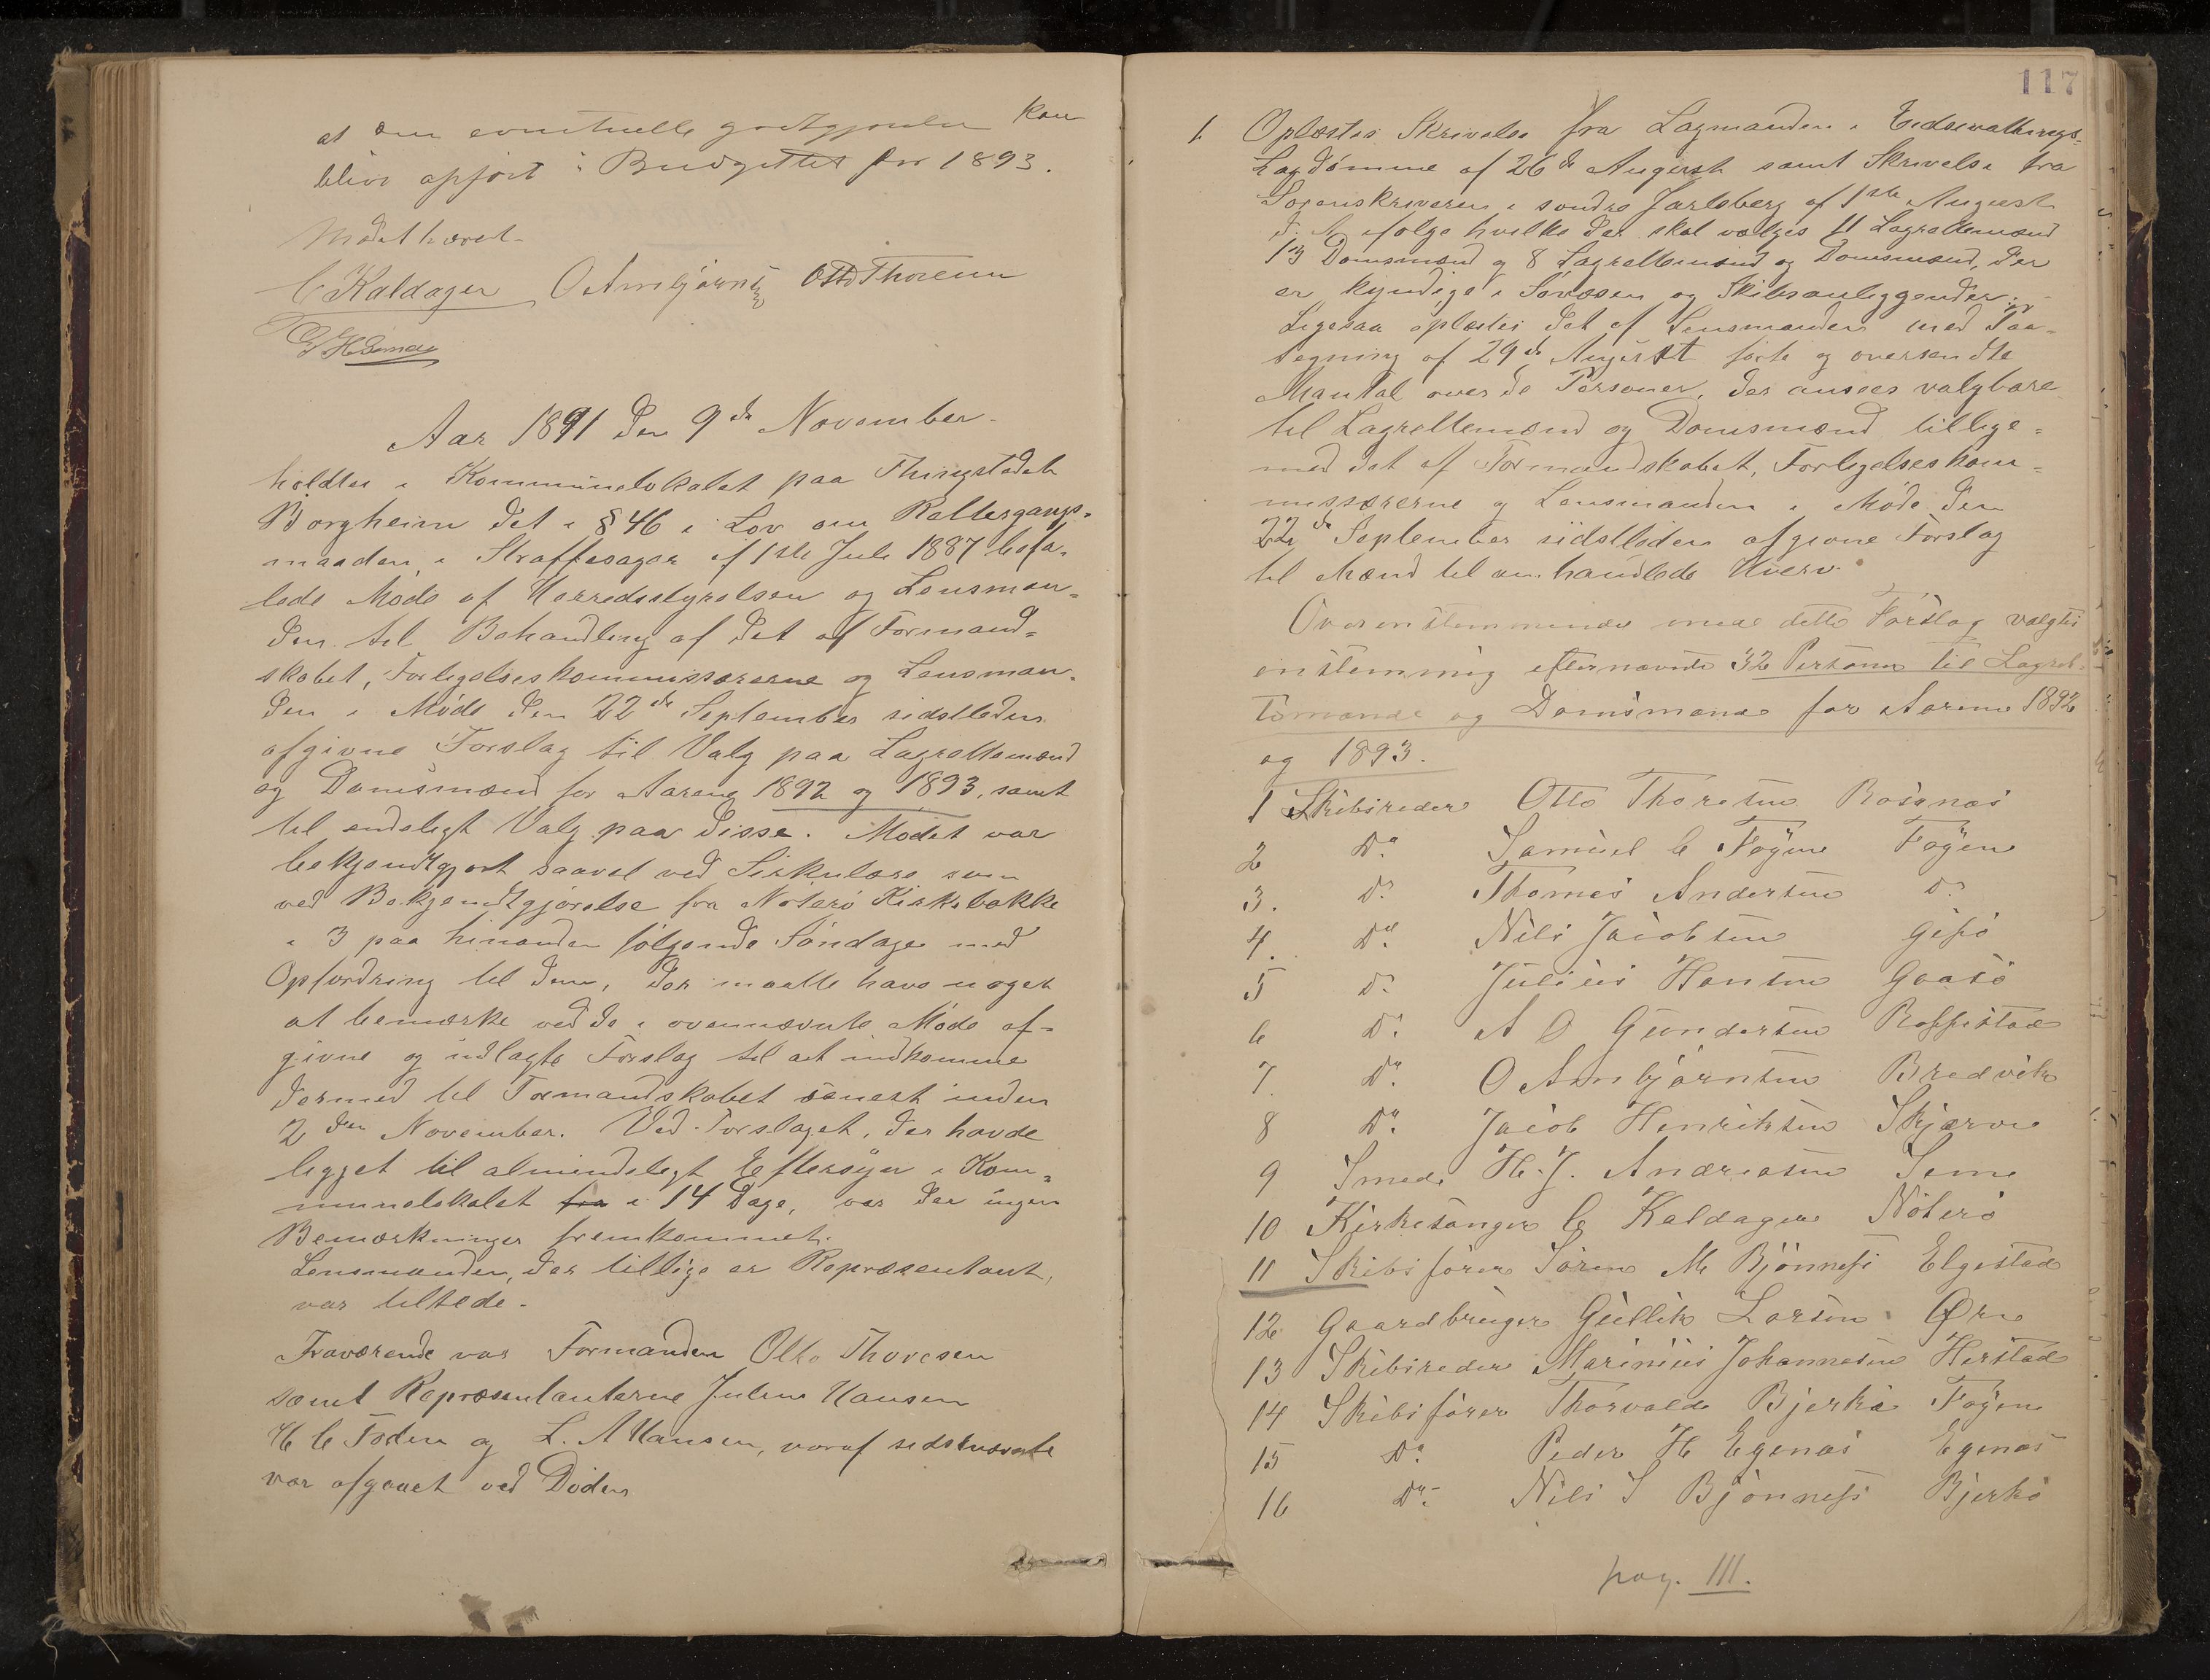 at den eventuelle godtgjørelse kan
blive opført i Budgettet for 1893.
Mødet hævet
C Kaldager O Ambjørnsen Otto Thoresen
Aar 1891 den 9de November
holdtes i Kommunelokalet paa Thingstedet
Borgheim det i § 46 i Lov om Rettergangs-
maaden i Straffesager af 1ste Juli 1887 befa-
lede Møde af Herredsstyrelsen og Lensman-
den til Behandling af det af Formand-
skabet, Forligelseskommissærerne og Lensman-
den i Møde den 22de September sidstleden
afgivne Forslag til Valg paa Lagrettemænd
og Domsmænd for Aarene 1892 og 1893, samt
til endeligt Valg paa disse. Mødet var
bekjendtgjort saavel ved Sirkulære som
ved Bekjendtgjørelse fra Nøterø Kirkebakke
i 3 paa hinanden følgende Søndage med
Opfordring til dem, der maatte have noget
at bemærke ved de i ovennævnte Møde af-
givne og udlagte Forslag til at indkomme
dermed til Formandskabet senest inden
2den November. Ved Forslaget, der havde
ligget til almindeligt Eftersyn i Kom-
munelokalet fra i 14 Dage, var der ingen
Bemærkninger fremkommet.
Lensmanden, der tillige er Repræsentant,
var tilstede.
Fraværende var Formanden Otto Thoresen
samt Repræsentanterne Julius Hansen
H C Foden og L. A Hansen, voraf sidstnævnte
var afgaaet ved Døden
117
1. Oplæstes Skrivelse fra Lagmanden i Eidsivathings-
Lagdømme af 26de August samt Skrivelse fra
Sorenskriveren i søndre Jarlsberg af 1ste August
d. A. ifølge hvilke der skal vælges 11 Lagrettemænd
13 Domsmænd og 8 Lagrettemænd og Domsmænd, der
er kyndige i Søvæsen og Skibsanliggender.
Ligesaa oplæstes det af Lensmanden med Paa-
tegning af 29de August førte og oversendte
Mantal over de Personer, der ansees valgbare
til Lagrettemænd og Domsmænd tillige-
med det af Formandskabet, Forligelseskom-
missærerne og Lensmanden i Møde den
22de September sidstleden afgivne Forslag
til Mænd til omhandlede Hverv.
Overensstemmende med dette Forslag valgtes
enstemmig efternævnte 32 Personer til Lagret-
temænd og Domsmænd for Aarene 1892
og 1893.
1 Skibsreder Otto Thoresen Rosanæs
2 Do. Samuel C Føyen Føyen
3. Do. Thomas Andersen Do
4. Do. Nils Jacobsen Gipø
5 Do. Julius Hansen Gaasø
6 Do. A O Gundersen
7. Do. O Ambjørnsen Bredvik
8 Do. Jacob Henriksen Skjærve
9 Smed H. J. Andreasen Sem
10 Kirkesanger C Kaldager Nøterø
11 Skibsfører Søren M Bjønness Elgestad
12 Gaardbruger Gullik Larsen Ørs
13 Skibsreder Marinius Johannesen Herstad
14 Skibsfører Thorvald Bjerkø Føyen
15 Do. Peder H Egenæs Egenæs
16 Do. Nils S Bjønness Bjerkø
pag. 111.